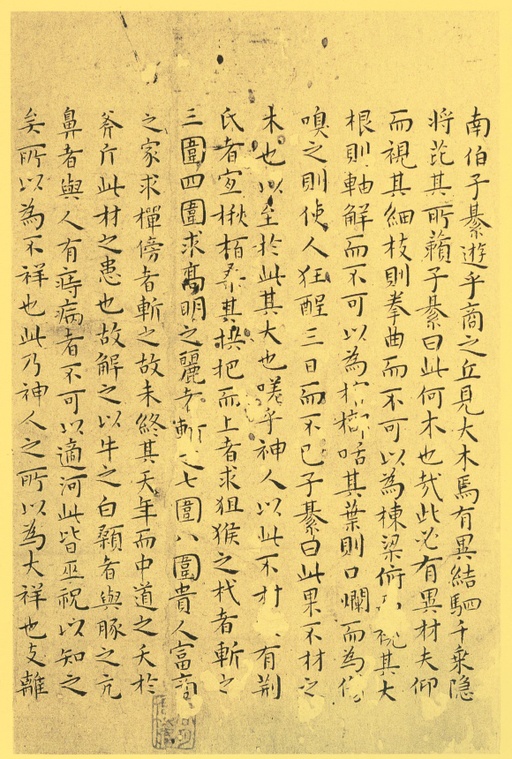 南伯子綦遊乎商之丘見大木焉有異結駟千乗隐
将芘其所籟子綦曰此何木也㢤此必有異材夫仰
而視其細枝則拳曲而不可以為棟梁俯 視其大
根則軸解而不可以為棺槨咶其葉則口爛而為
嗅之則使人狂酲三日而不已子綦曰此果不材之
木也以至於此其大也嗟乎神人以此不材 有荆
氏者宜楸栢桑其拱把而上者求狙猴之杙者斬之
三圍四圍求髙明之麗者斬之七圍八圍貴人富商
之家求樿傍者斬之故未終其天年而中道之夭於
斧斤此材之患也故解之以牛之白顙者與豚之亢
鼻者與人有痔病者不可以適河此皆巫祝以知之
矣所以為不祥也此乃神人之所以為大祥也支離